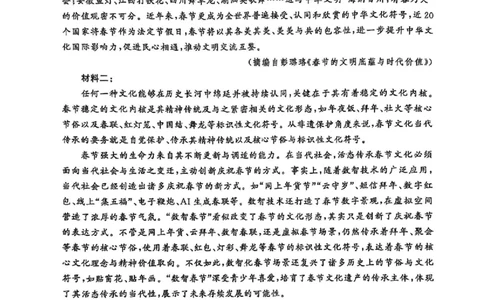 的价值现密不可分。近年来,春节更成为全世界普遍接受、认同和欣赏的中华文化符号,近20
个国家将春节作为法定节假日,春节将以其各美其美、美美与共的包容性,进一步提升中华文
化国际影响力,促进民心相通,推动文明交流互鉴。
(摘编自彭璐珞《春节的文明底蕴与时代价值》)
材料二:
任何一种文化能够在历史长河中绵延并被持续认同,关键在于其有着稳定的文化内核。
春节稳定的文化内核是其精神传统及与之紧密相关的文化形态,如年夜饭、拜年、社火等核心
节俗以及春联、红灯笼、中国结、舞龙等标识性文化符号。从非遗保护角度来说,春节文化当代
传承的要务就是自觉保护、传承其精神传统以及核心节俗与标识性文化符号。
春节强大的生命力来自其不断更新与调适的能力。在当代社会,活态传承春节文化必须
面向当代社会与生活之变迁,主动创新庆祝春节的方式。事实上,随着数智技术的广泛应用,
当代社会已经创造出诸多庆祝春节的新方式。如“网上年货节”“云守岁”、短信拜年、数字红
包、线上“集五福”、电子鞭炮、AI生成春联等。数智技术还打造了春节数字景观,在虚拟空间
营造了浓厚的春节气氛。“数智春节”看似改变了春节的文化形态,其实只是创新了庆祝春节
的表达方式。不管是网上年货、云拜年、数智春联,还是虚拟春节场景,仍然传承着拜年、聚会
等春节的核心节俗,使用着春联、红包、灯彩、舞龙等春节的标识性文化符号,表达着春节的核
心文化理念与精神价值取向。不仅如此,数智化春节场景还复兴了诸多历史上的节俗与文化
符号,如贴窗花、贴年画。“数智春节”深受青少年喜爱,培育了春节文化遗产的传承主体,体现
了其活态传承的当代性,展示了未来存续发展的可能性。